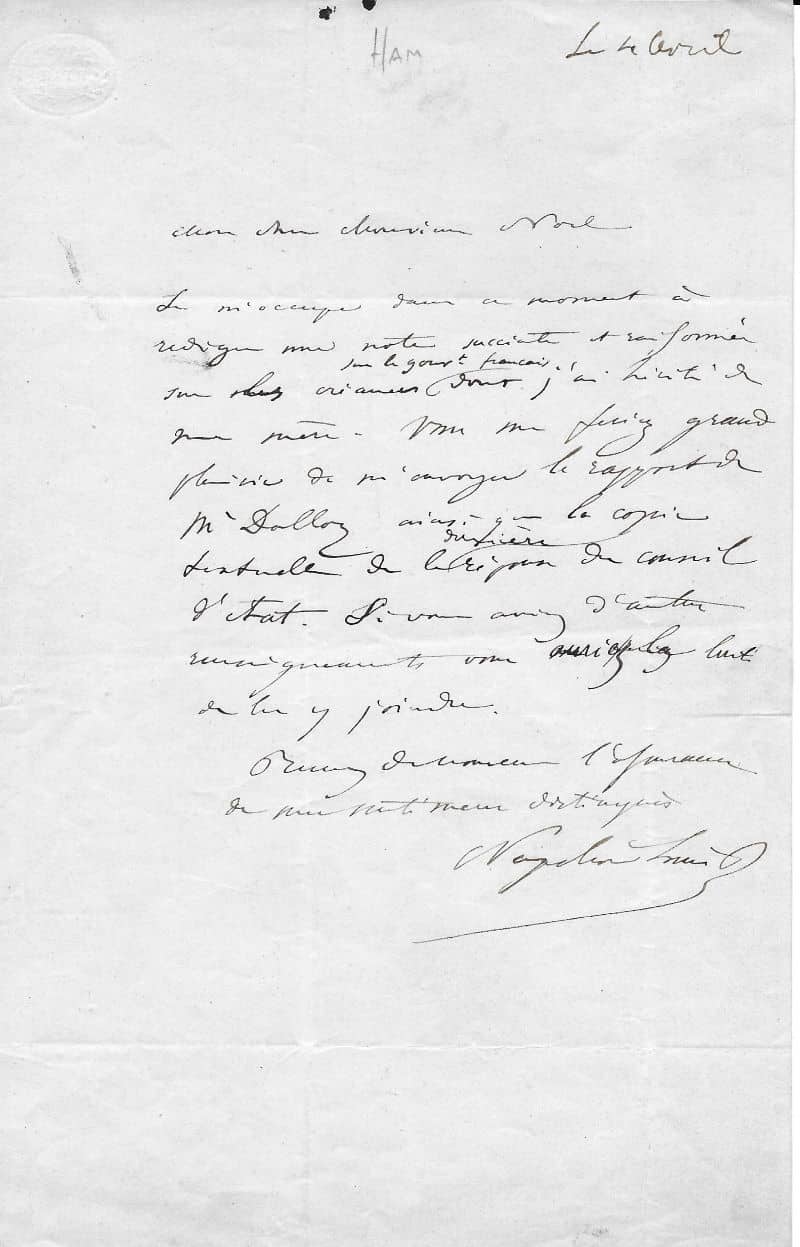 HAM
Le 4 Avril
Mon cher Monsieur Noël
Je m'occupe dans ce moment à
rediger une note succincte et raisonnée
sur le gouvt. français
sur les créances (dont j'ai hérité de
ma mère. Vous me feriez grand
plaisir de m'envoyer le rapport de
Mr Dalloz ainsi que la copie
dernière
textuelle de la réponse du conseil
d'état. Si vous aviez d'autres
renseignements vous auriez la bonté
de les y joindre.
Recevez de nouveau l'assurance
de mes sentimens distingués
Napoléon Louis B